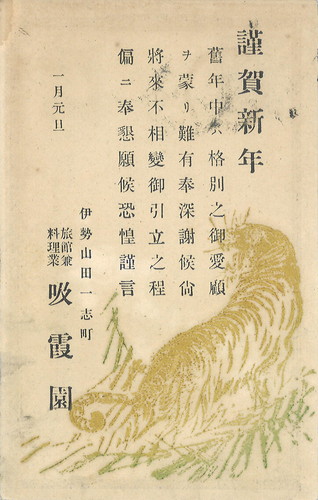 謹賀新年
舊年中ハ格別之御愛顧
ヲ蒙リ難有奉深謝候尙
將來不相變御引立之程
偏ニ奉懇願候恐惶謹言
一月元旦
伊勢山田一志町
旅館兼
料理業
吸霞園